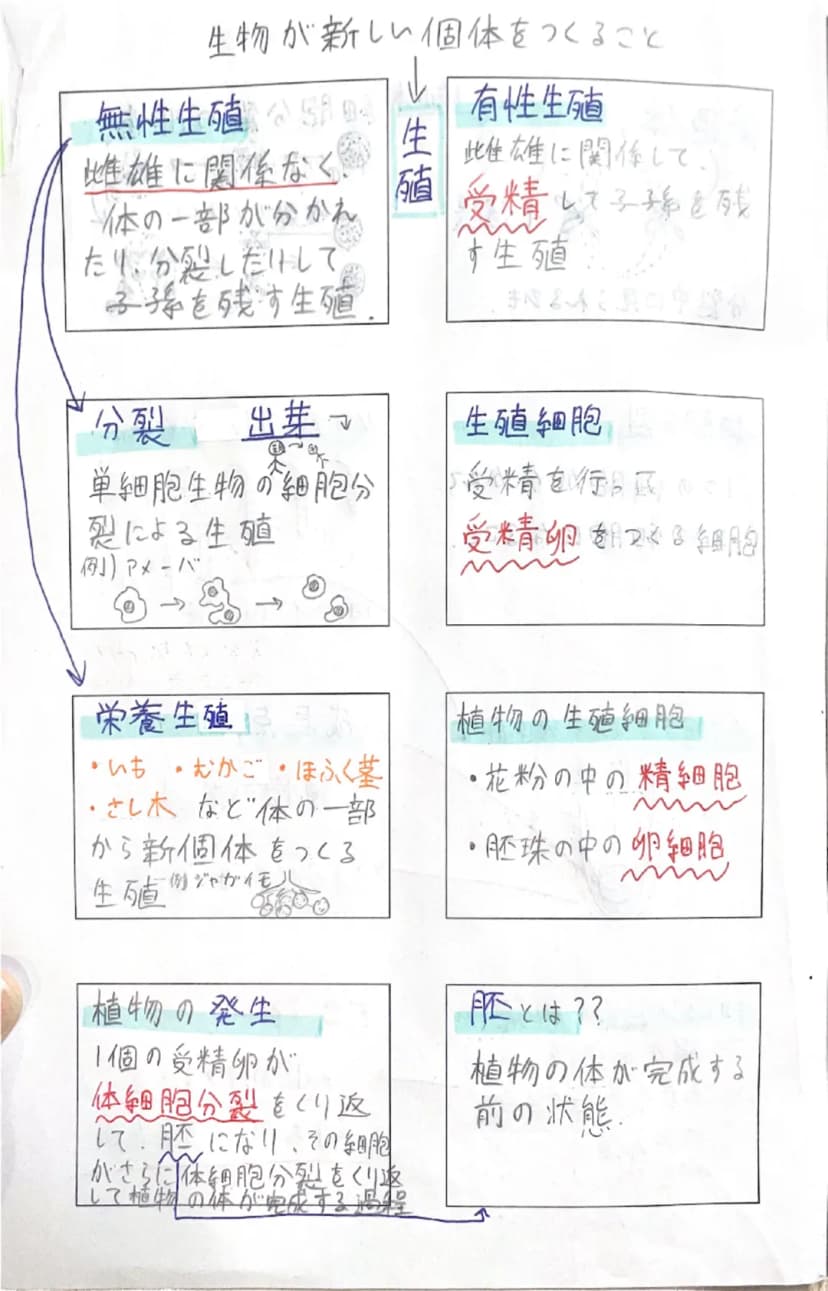 生物が新しい個体をつくること
生殖
無性生殖
雌雄に関係なく、
体の一部が分かれ
たり、分裂したりして
子孫を残す生殖.
有性生殖
雌雄に関係して、
受精して子孫を残
す生殖
分裂 出芽
単細胞生物の細胞分
裂による生殖
例)アメーバ
生殖細胞
受精を行い
受精卵をつくる細胞
栄養生殖
・いも ・むかご ・ほふく茎
・さし木 など体の一部
から新個体をつくる
生殖 例 ジャガイモ
植物の生殖細胞
・花粉の中の精細胞
・胚珠の中の卵細胞
植物の発生
1個の受精卵が
体細胞分裂をくり返
して、胚になり、その細胞
がさらに体細胞分裂をくり返
して植物の体が完成する過程
胚とは??
植物の体が完成する
前の状態.